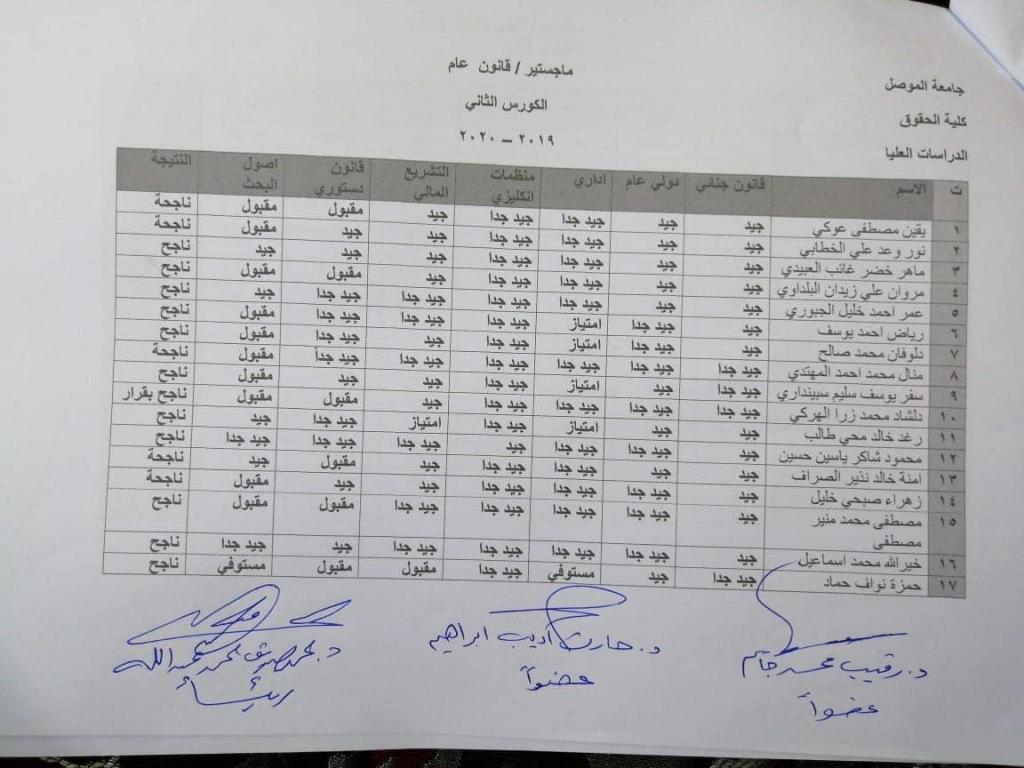 جامعة الموصل
كلية الحقوق
الدراسات العليا
ماجستير / قانون عام
الكورس الثاني
٢٠١٩ – ٢٠٢٠
ت الاسم قانون جنائي دولي عام اداري منظمات انكليزي التشريع المالي قانون دستوري اصول البحث النتيجة
١ يقين مصطفى عوكي جيد جيد جيد جدا جيد جدا جيد مقبول مقبول ناجحة
٢ نور وعد علي الخطابي جيد جيد جيد جدا جيد جدا جيد جيد مقبول ناجحة
٣ ماهر خضر غائب العبيدي جيد جيد جيد جدا جيد جدا جيد جيد جيد ناجح
٤ مروان علي زيدان البلداوي جيد جيد جيد جدا جيد جدا جيد مقبول مقبول ناجح
٥ عمر احمد خليل الجبوري جيد جيد جيد جدا جيد جدا جيد جدا جيد جدا جيد ناجح
٦ رياض احمد يوسف جيد جيد جدا امتياز جيد جدا جيد جدا جيد جدا مقبول ناجح
٧ دلوفان محمد صالح جيد جيد جدا امتياز جيد جدا جيد جيد جدا مقبول ناجح
٨ منال محمد احمد المهتدي جيد جدا جيد جدا جيد جدا جيد جدا جيد جدا جيد جداً مقبول ناجحة
٩ سفر يوسف سليم سبينداري جيد جدا جيد امتياز جيد جدا جيد جيد مقبول ناجح
١٠ دلشاد محمد زرا الهركي جيد جدا جيد جدا جيد جدا جيد جدا جيد مقبول مقبول ناجح بقرار
١١ رغد خالد محي طالب جيد جيد امتياز جيد جدا امتياز جيد جدا جيد ناجح
١٢ محمود شاكر ياسين حسين جيد جيد جدا جيد جدا جيد جيد جدا جيد جدا جيد جدا ناجح
١٣ امنة خالد نذير الصراف جيد جيد جيد جدا جيد جدا جيد مقبول جيد ناجحة
١٤ زهراء صبحي خليل جيد جيد جدا جيد جدا جيد جدا جيد جيد مقبول ناجحة
١٥ مصطفى محمد منير مصطفى جيد جيد جدا جيد جدا جيد جدا جيد جدا مقبول مقبول ناجح
١٦ خيرالله محمد اسماعيل جيد جيد جدا جيد جدا جيد جدا جيد جدا جيد جيد جدا ناجح
١٧ حمزة نواف حماد جيد جدا جيد مستوفي جيد جدا مقبول مقبول مستوفي ناجح
د. رقيب محمد جاسم
عضواً
د. حارث أديب ابراهيم
عضواً
د. محمد صديق محمد عبدالله
رئيساً